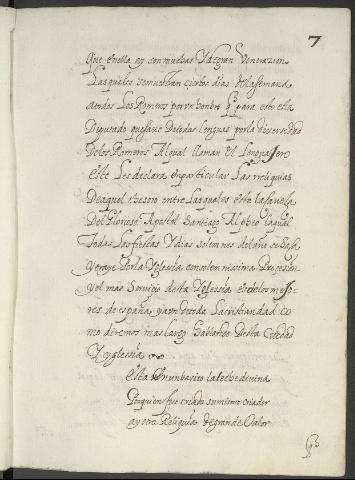 7
que en ella ay son muchas y de gran veneraçion
las quales se muestran ciertos dias de la semana
a todos los Romeros por un hombre q para esto esta
Diputado que sabe de todas lenguas por la diversidad
de los Romeros Al qual llaman el lenguajero
este les declara en particular las reliquias
de aquel thesoro entre las quales esta la
Del Glorioso Apostol Santiago Alpheo laqual
todas las fiestas y dias solemnes del año se saca
y traye por la yglesia con solemnissima Procesion
y el mas servicio desta yglesia es de los mejo
res de españa y aun de toda la cristiandad co
mo diremos mas largo hablando desta ciudad
y yglesia
esta en un basito la leche divina
Por quien fue criado su mismo criador
ay otra Reliquia de grande valor